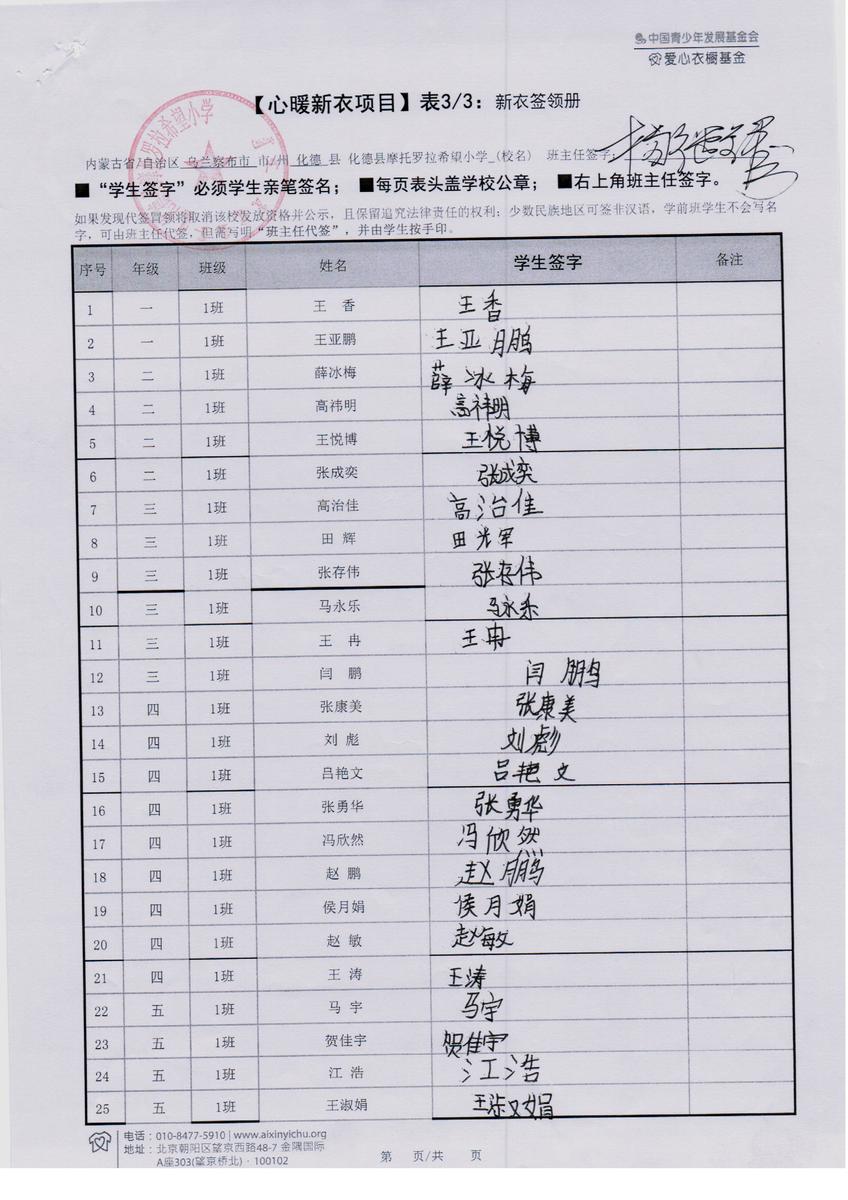 中国青少年发展基金会
爱心衣橱基金
【心暖新衣项目】表3/3：新衣签领册
内蒙古省/自治区 乌兰察布市 市/州 化德 县 化德县摩托罗拉希望小学 (校名) 班主任签字：
■“学生签字”必须学生亲笔签名； ■每页表头盖学校公章； ■右上角班主任签字。
如果发现代签冒领将取消该校发放资格并公示，且保留追究法律责任的权利；少数民族地区可签非汉语，学前班学生不会写名
字，可由班主任代签，但需写明“班主任代签”，并由学生按手印。
序号 年级 班级 姓名 学生签字 备注
1 一 1班 王 香 王香
2 一 1班 王亚鹏 王亚鹏
3 二 1班 薛冰梅 薛冰梅
4 二 1班 高祎明 高祎明
5 二 1班 王悦博 王悦博
6 二 1班 张成奕 张成奕
7 三 1班 高治佳 高治佳
8 三 1班 田 辉 田光军
9 三 1班 张存伟 张存伟
10 三 1班 马永乐 马永乐
11 三 1班 王 冉 王冉
12 三 1班 闫 鹏 闫鹏
13 四 1班 张康美 张康美
14 四 1班 刘 彪 刘彪
15 四 1班 吕艳文 吕艳文
16 四 1班 张勇华 张勇华
17 四 1班 冯欣然 冯欣然
18 四 1班 赵 鹏 赵鹏
19 四 1班 侯月娟 侯月娟
20 四 1班 赵 敏 赵敏
21 四 1班 王 涛 王涛
22 五 1班 马 宇 马宇
23 五 1班 贺佳宇 贺佳宇
24 五 1班 江 浩 江浩
25 五 1班 王淑娟 王淑娟
电话：010-8477-5910 | www.aixinyichu.org
地址：北京朝阳区望京西路48-7 金隅国际
A座303(望京桥北)·100102
第 页/共 页